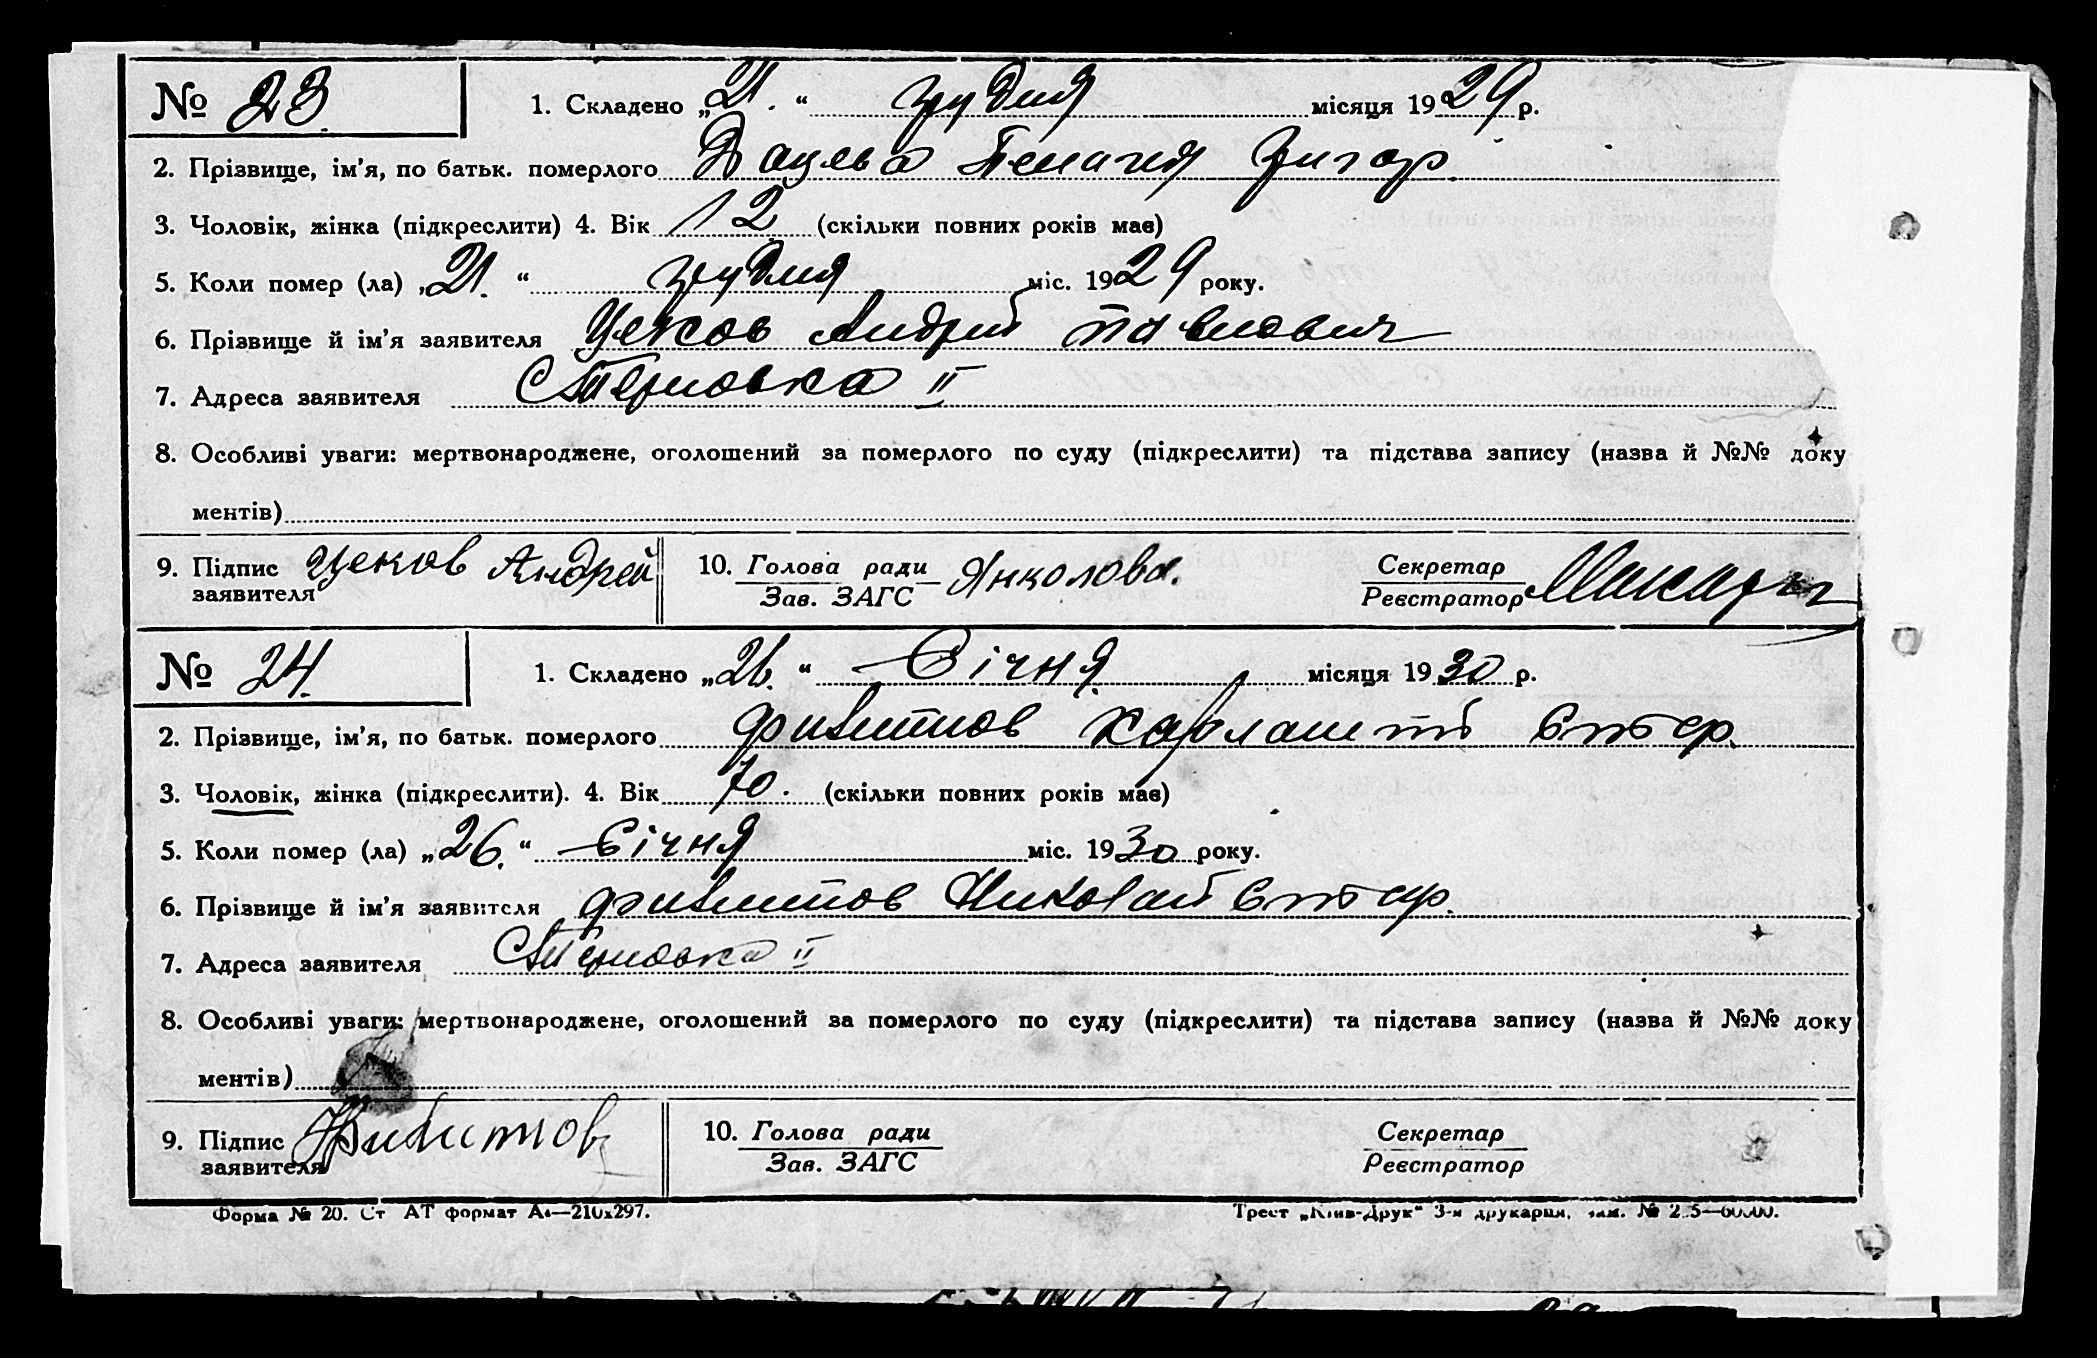 № 23. 1. Складено „21.“ грудня місяця 1929 р.
2. Прізвище, ім'я, по батьк. померлого Пелагия Григор.
3. Чоловік, жінка (підкреслити) 4. Вік 12 (скільки повних років має)
5. Коли помер (ла) „21.“ грудня міс. 1929 року.
6. Прізвище й ім'я заявителя Цеков Андрей Павлович
7. Адреса заявителя С Терновка II
8. Особливі уваги: мертвонароджене, оголошений за померлого по суду (підкреслити) та підстава запису (назва й №№ доку
ментів)
9. Підпис заявителя Цеков Андрей 10. Голова ради Зав. ЗАГС Секретар Реєстратор
№ 24. 1. Складено „26.“ Січня місяця 1930 р.
2. Прізвище, ім'я, по батьк. померлого
3. Чоловік, жінка (підкреслити). 4. Вік 70. (скільки повних років має)
5. Коли помер (ла) „26.“ Січня міс. 1930 року.
6. Прізвище й ім'я заявителя Николай
7. Адреса заявителя С Терновка II
8. Особливі уваги: мертвонароджене, оголошений за померлого по суду (підкреслити) та підстава запису (назва й №№ доку
ментів)
9. Підпис заявителя 10. Голова ради Зав. ЗАГС Секретар Реєстратор
Форма № 20. Ст АТ формат А4—210х297. Трест „Київ-Друк“ 3-я друкарня,